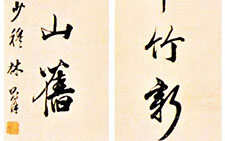 竹新
山舊
少穆林則徐